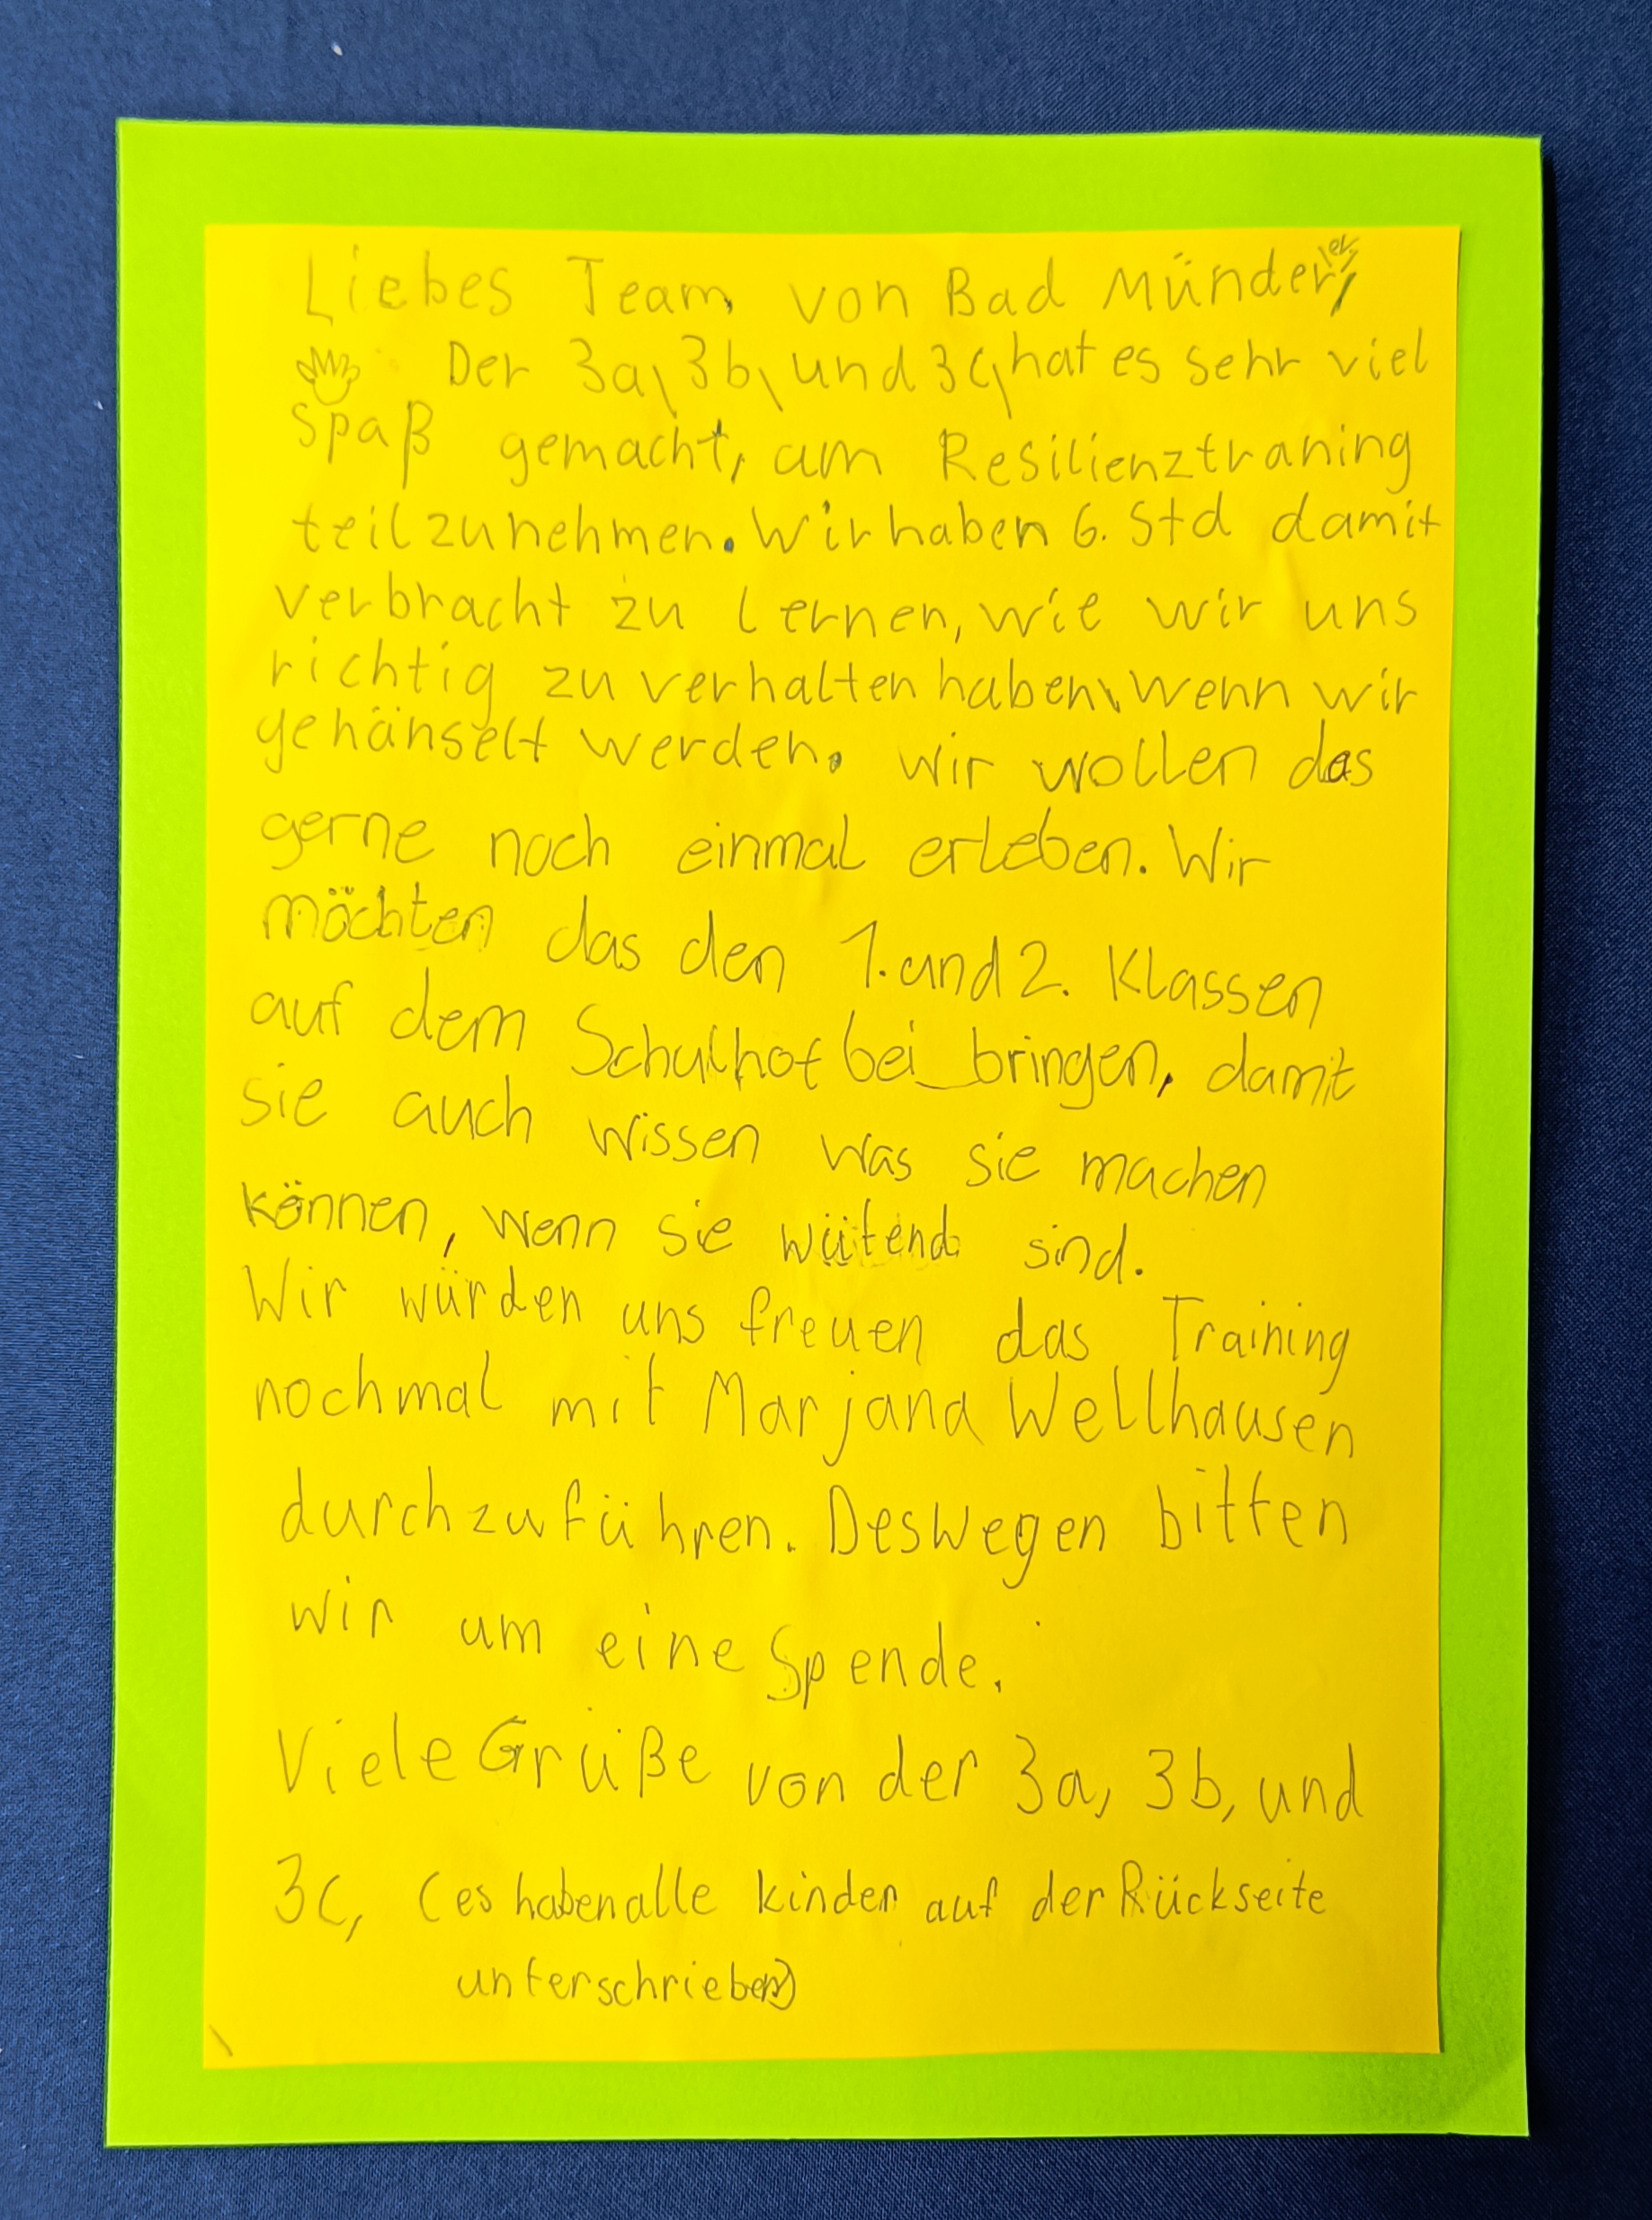 Liebes Team von Bad Münderler,
Der 3a, 3b, und 3c, hat es sehr viel
Spaß gemacht, am Resilienztraning
teilzunehmen. Wir haben 6. Std damit
verbracht zu lernen, wie wir uns
richtig zu verhalten haben, wenn wir
gehänselt werden. Wir wollen das
gerne noch einmal erleben. Wir
möchten das den 1. und 2. Klassen
auf dem Schulhof bei_bringen, damit
sie auch wissen was sie machen
können, wenn sie wütend sind.
Wir würden uns freuen das Training
nochmal mit Marjana Wellhausen
durchzuführen. Deswegen bitten
wir um eine Spende.
Viele Grüße von der 3a, 3b, und
3c, (es haben alle kinder auf der Rückseite
unterschrieben)